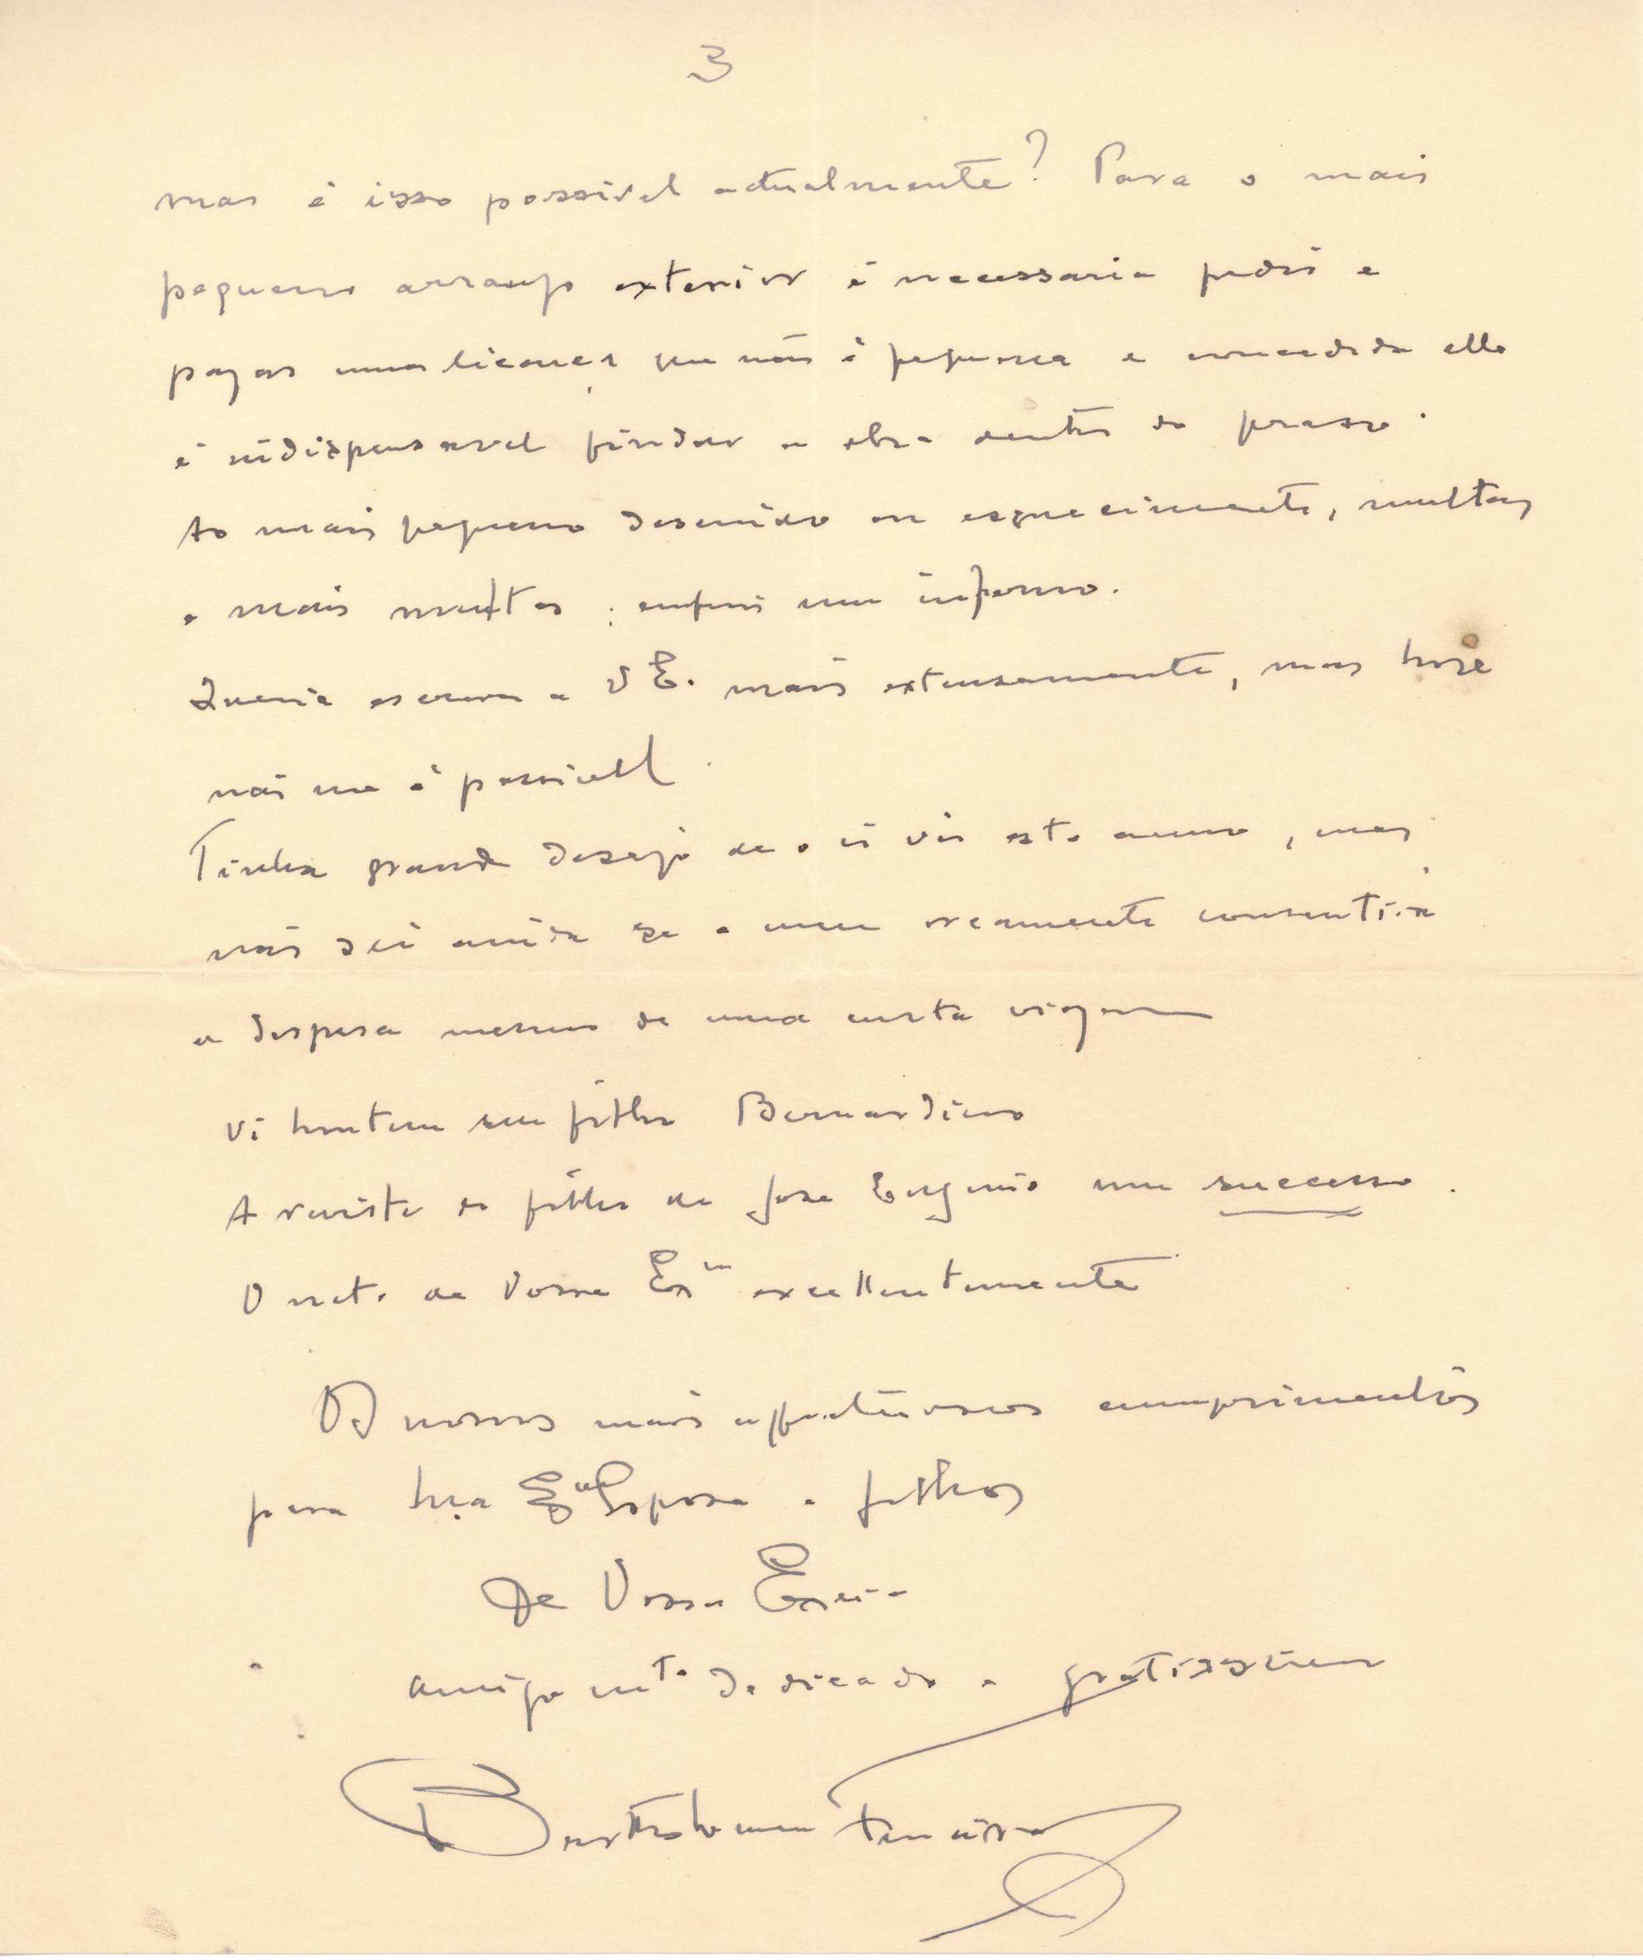 3
mas é isso possivel actualmente? Para o mais
pequeno arranjo exterior é necessario pedir e
pagar uma licença que não é pequena e concedida ella
é indispensavel findar a obra dentro do praso.
Ao mais pequeno descuido ou esquecimento, multas
e mais multas; enfim um inferno.
Queria escrever a V E. mais extensamente, mas hoje
não me é possivel.
Tinha grande desejo de o ir vêr este anno, mas
não sei ainda se o meu orçamento consentirá
a despesa mesmo de uma curta viagem
Vi hontem seu filho Bernardino
A revista do filho de José Eugenio um successo.
O neto de Vossa Exª excellentemente
Os nossos mais affectuosos cumprimentos
para Esposa e filhos
De Vossa Excia
amigo mto dedicado e gratissimo
Bartholomeu